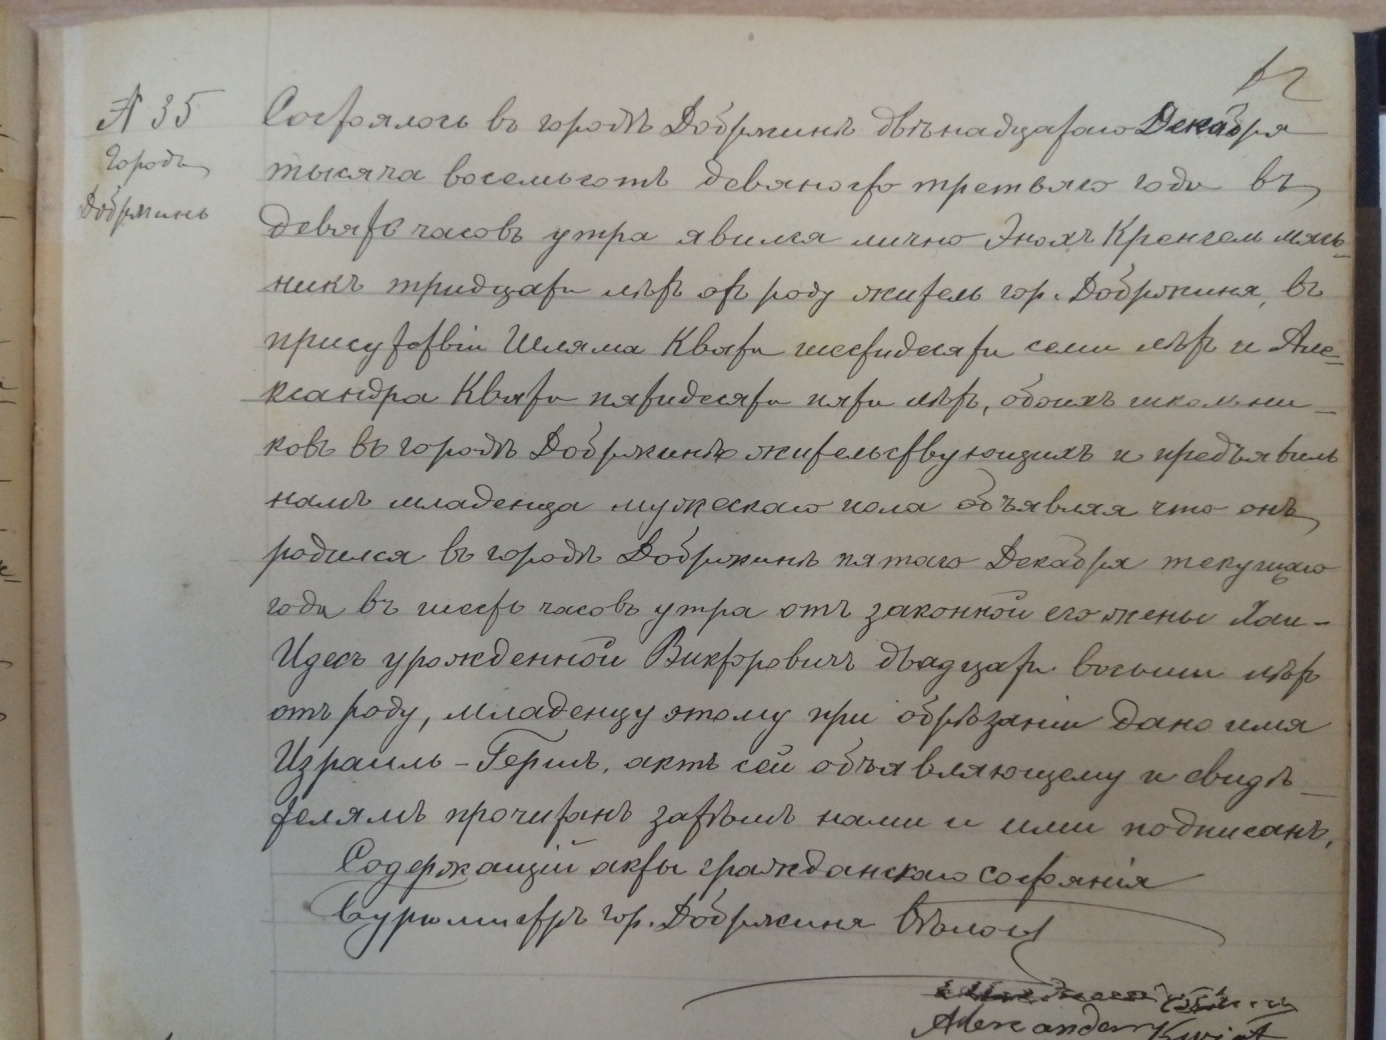 62
№ 35
Городъ
Добржинь
Состоялось въ городѣ Добржинѣ двѣнадцатаго Декабря
тысяча восемьсотъ девяносто третьяго года въ
девять часовъ утра явился лично Энохъ Кренгель мяс-
никъ тридцати лѣтъ отъ роду житель гор. Добржиня, въ
присутствіи Шляма Квята шестидесяти семи лѣтъ и Але-
ксандра Квята пятидесяти пяти лѣтъ, обоихъ школьни-
ковъ въ городѣ Добржинѣ жительствующихъ и предъявилъ
намъ младенца мужескаго пола объявляя что онъ
родился въ городѣ Добржинѣ пятаго Декабря текущаго
года въ шесть часовъ утра отъ законной его жены Хаи-
Идесъ урожденной Викторовичъ двадцати восьми лѣтъ
отъ роду, младенцу этому при обрѣзаніи дано имя
Израиль-Гершъ. актъ сей объявляющему и свидѣ-
телямъ прочитанъ затѣмъ нами и ими подписанъ.
Содержащій акты гражданскаго состоянія
Бургмистръ гор. Добржиня
Alexander Kwiat